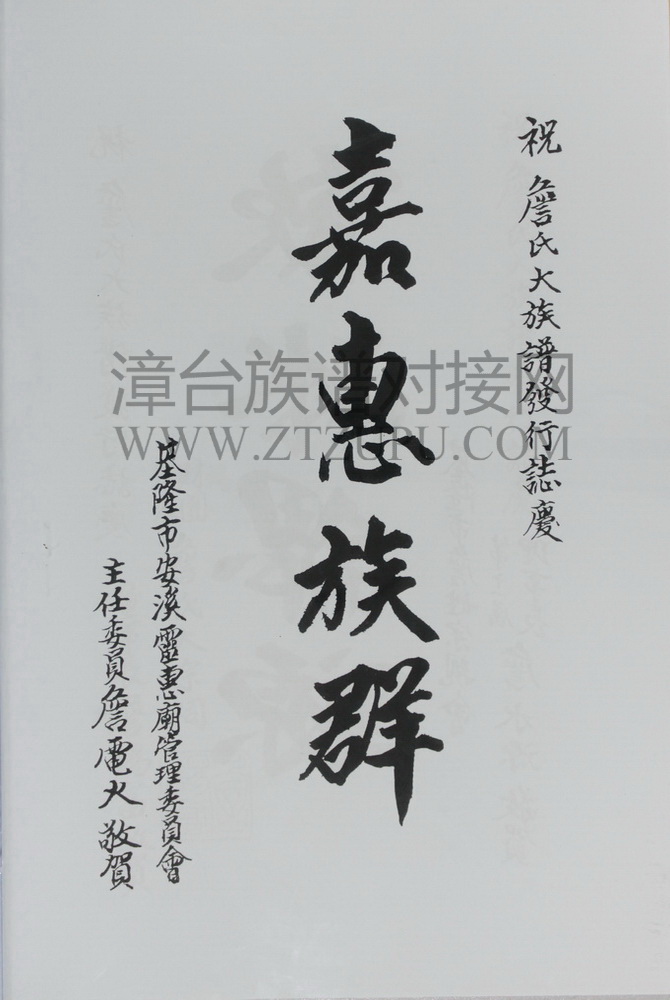 祝 詹氏大族譜發行誌慶
嘉惠族群
基隆市安溪靈惠廟管理委員會
主任委員詹電火 敬賀
漳台族谱对接网
WWW.ZTZUPU.COM